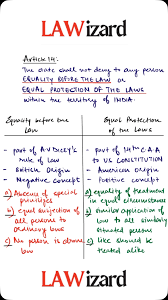 LAWizard
Article 14:
The state shall not deny to any person
EQUALITY BEFORE THE LAW or
EQUAL PROTECTION OF THE LAWS
within the territory of INDIA.
Equality before the Law
- Part of A.V DICEY's rule of law
- British Origin
- Negative concept
a) Absence of special privileges
b) equal subjection of all persons to ordinary laws
c) No person is above law
Equal Protection of the Laws
- Part of 14th C.A.A TO US CONSTITUTION
- American Origin
- Positive concept
a) equality of treatment in equal circumstances
b) similar application of law to all similarly situated persons
c) like should be treated alike
LAWizard